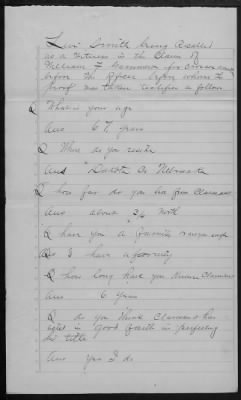 Levi Smith being called
as a witness in the Claim of
William F
before the officer before whom the
proof was taken testifies as follows
Q What is your age
Ans 67 years
Q Where do you reside
Ans Co Nebraska
Q how far do you live from Claimant
Ans about 3/4 mile
Q have you a family
Ans I have a family
Q how long have you known Claimant
Ans 6 years
Q do you think Claimant has
acted in good faith in perfecting
his title
Ans yes I do